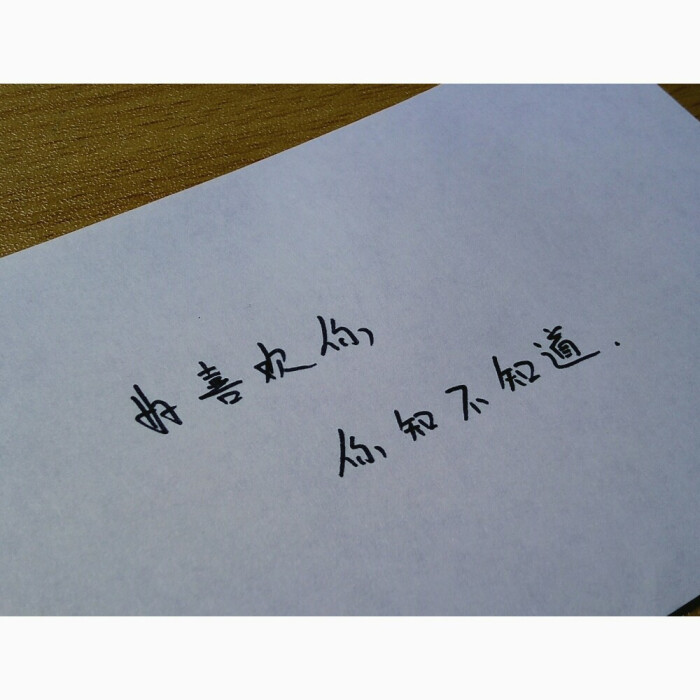 好喜欢你
你知不知道.